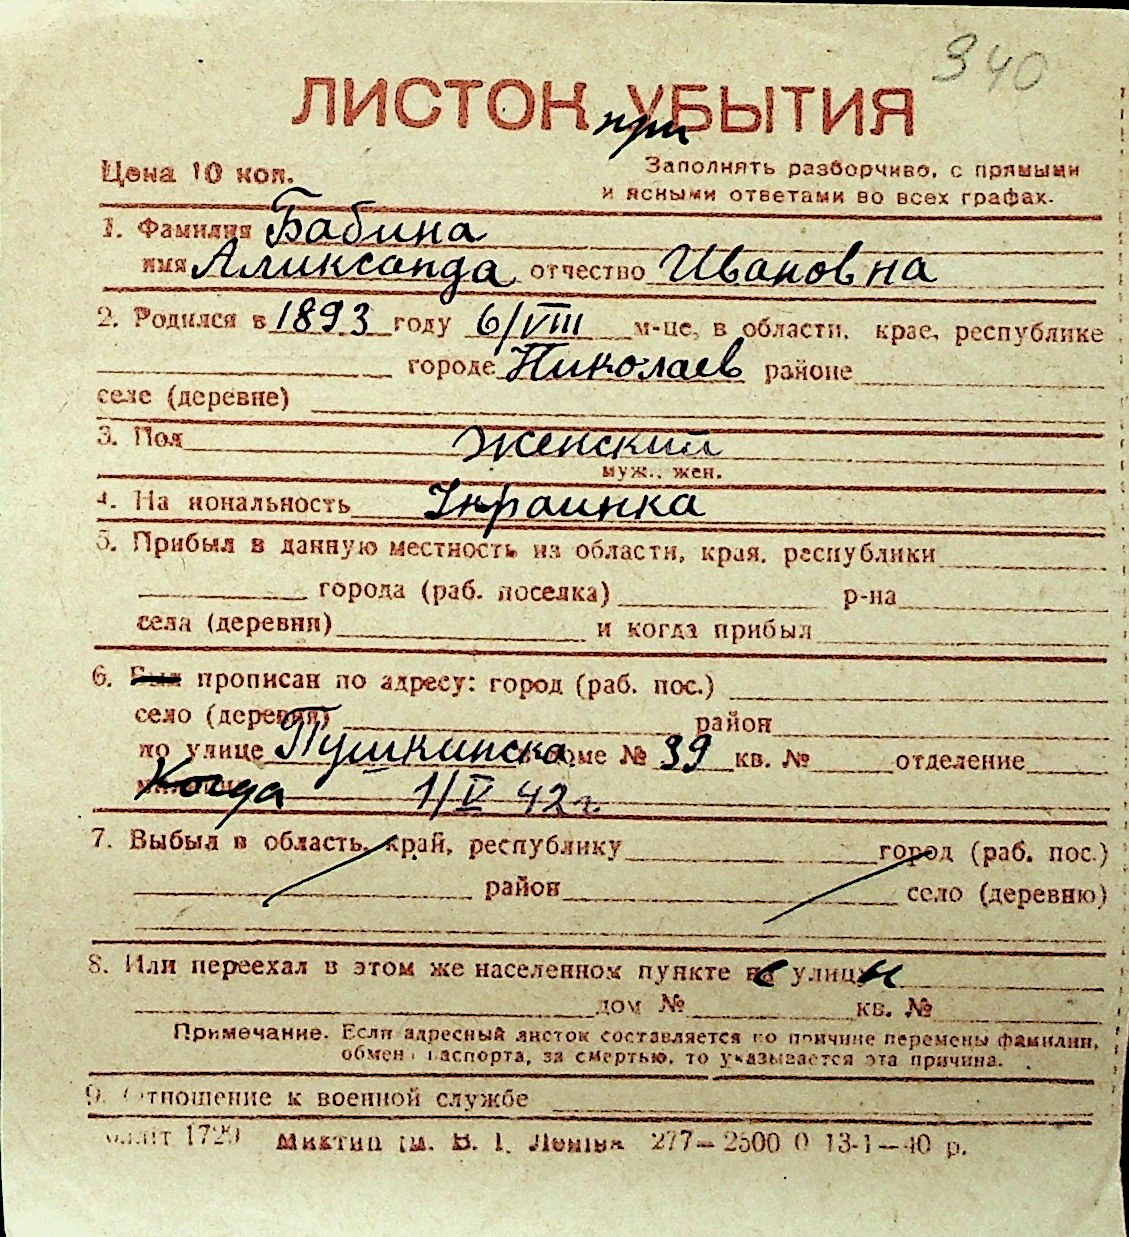 340
ЛИСТОК УБЫТИЯ
при
Цена 10 коп.
Заполнять разборчиво, с прямыми
и ясными ответами во всех графах.
1. Фамилия Бабина
имя Аликсанда отчество Ивановна
2. Родился в 1893 году 6/VIII м-це, в области, крае, республике
городе Николаев районе
селе (деревне)
3. Пол Женский
муж., жен.
4. На иональность Украинка
5. Прибыл в данную местность из области, края, республики
города (раб. поселка) р-на
села (деревни) и когда прибыл
6. Был прописан по адресу: город (раб. пос.)
село (деревня) район
по улице Пушкинска доме № 39 кв. № отделение
Когда 1/V 42 г.
7. Выбыл в область, край, республику город (раб. пос.)
район село (деревню)
8. Или переехал в этом же населенном пункте с улицы
дом № кв. №
Примечание. Если адресный листок составляется по причине перемены фамилии,
обмена паспорта, за смертью, то указывается эта причина.
9. Отношение к военной службе
1729 Миктип им. В. І. Леніна 277—2500 0 13-1—40 р.